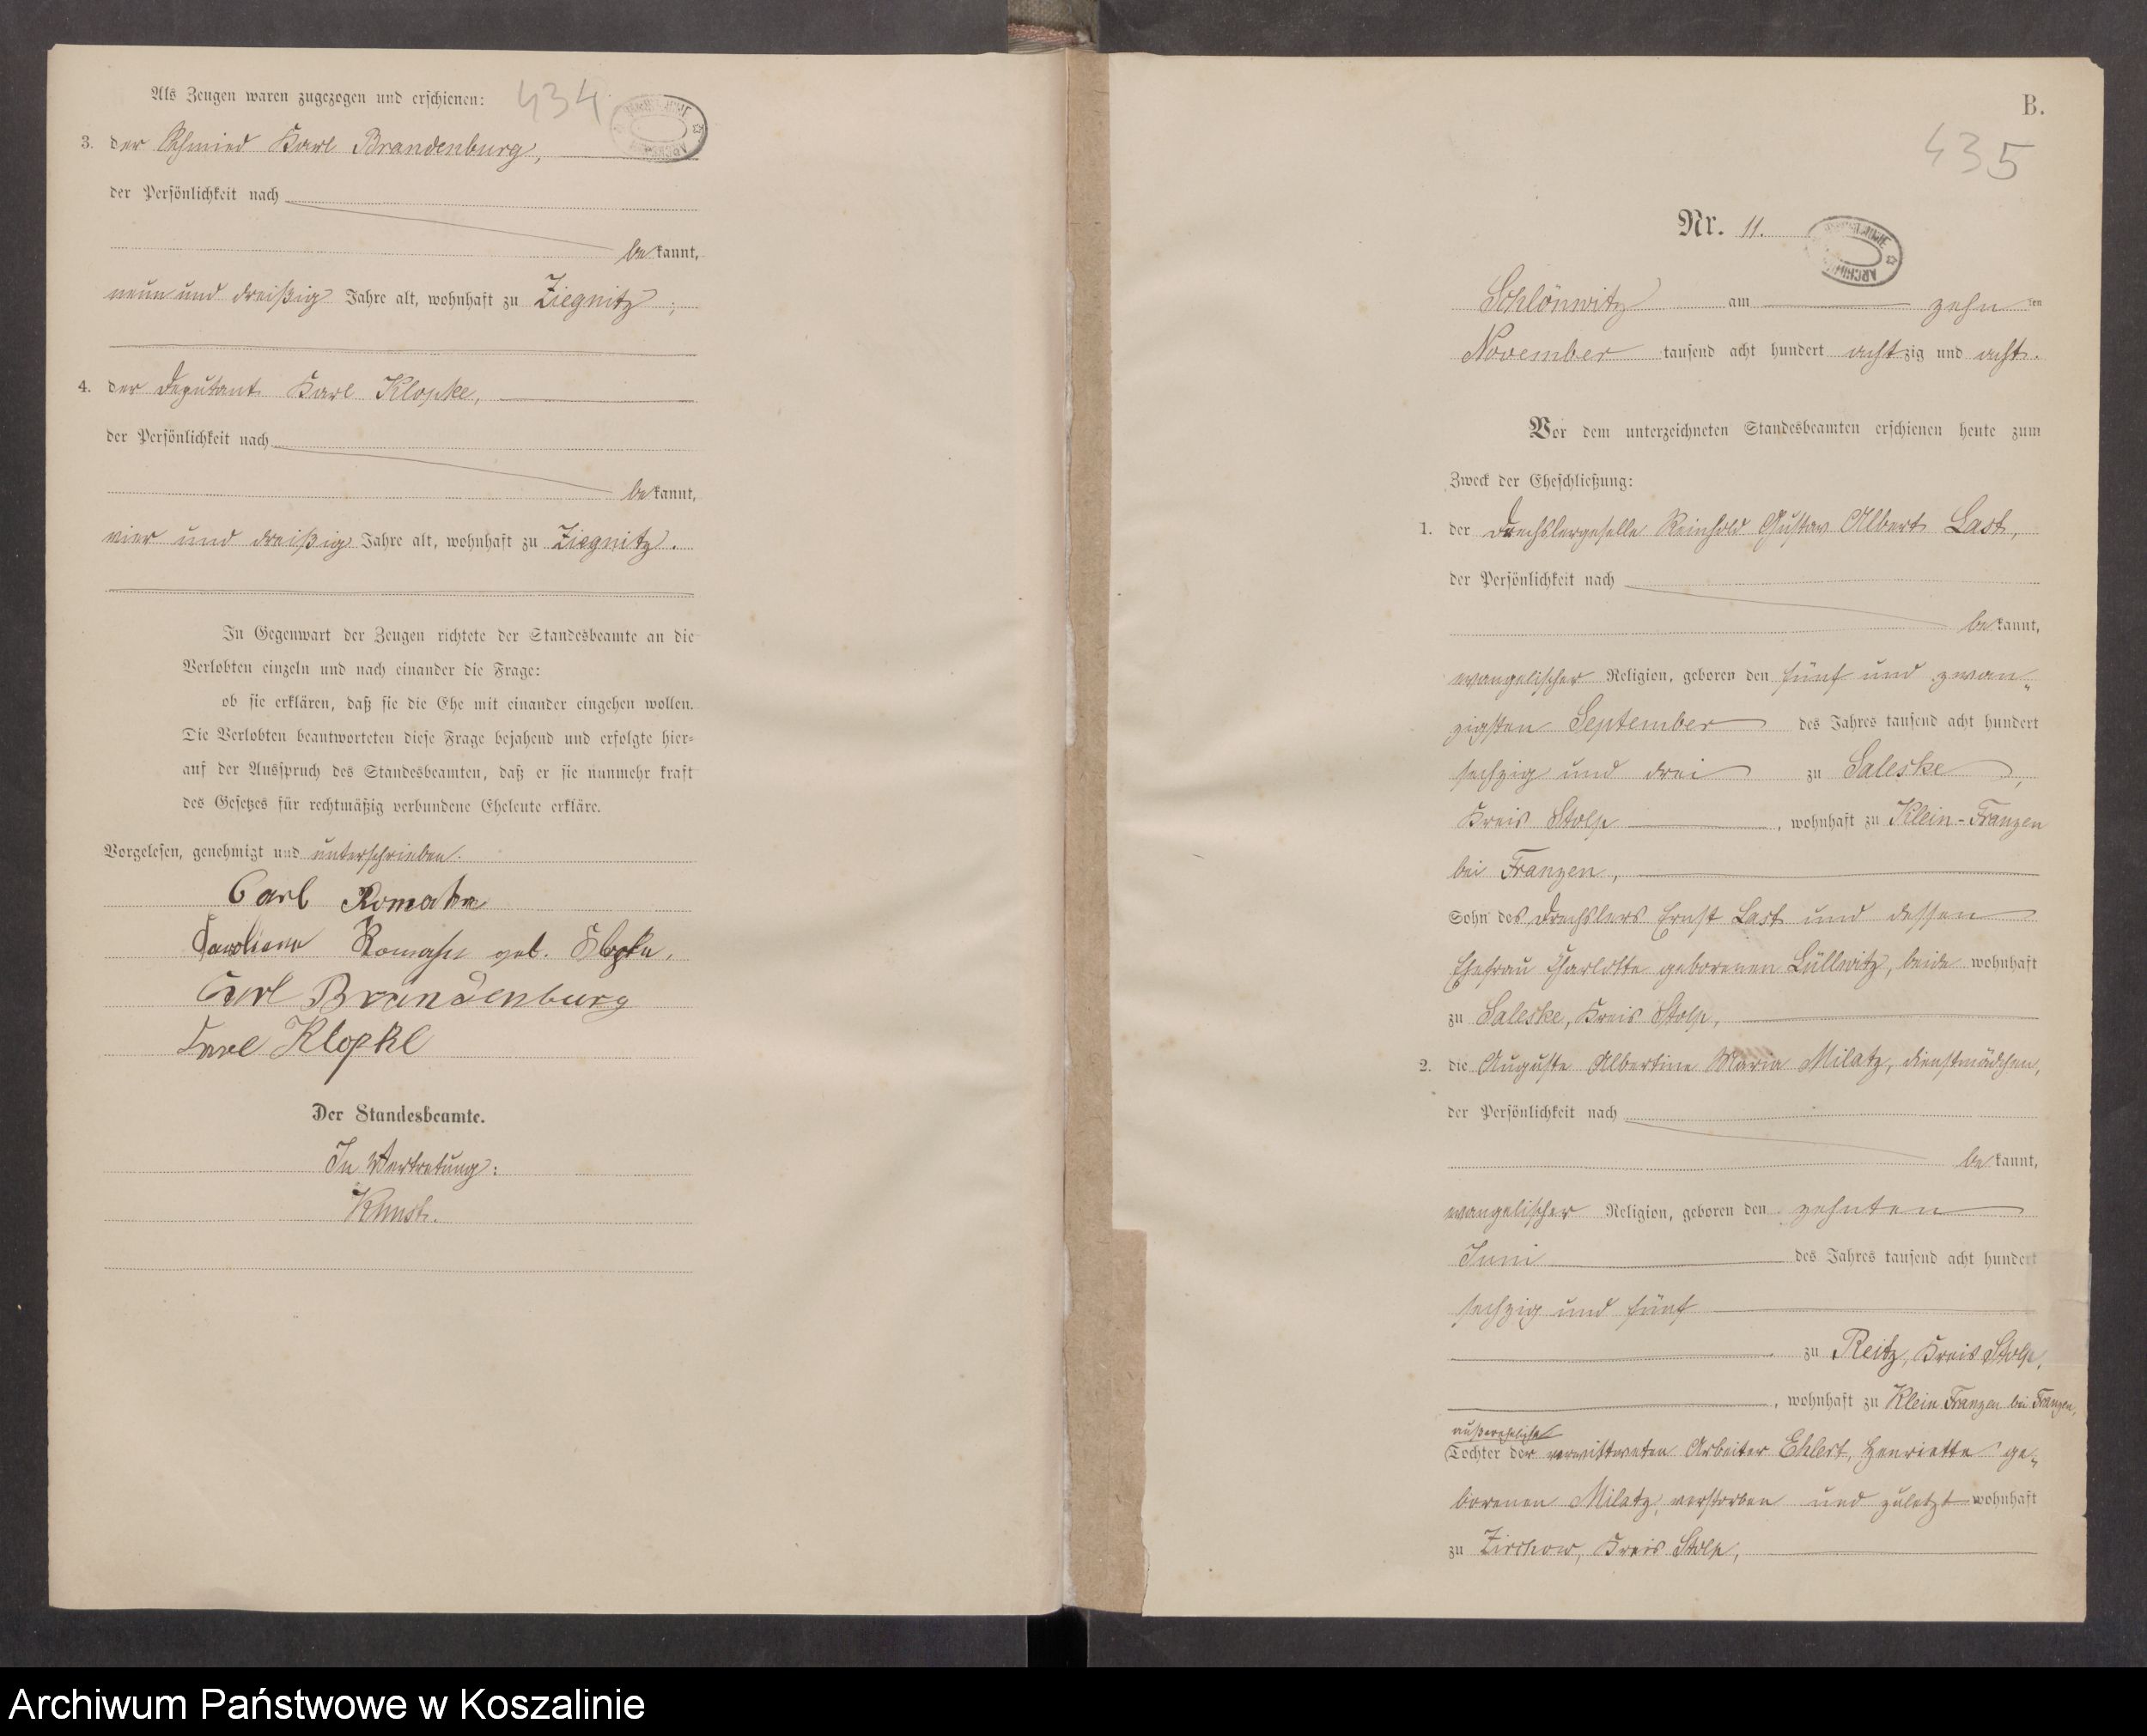 Als Zeugen waren zugezogen und erschienen:
434
3. der Schmied Karl Brandenburg,
der Persönlichkeit nach
be kannt,
neun und dreißig Jahre alt, wohnhaft zu Ziegnitz;
4. der Deputant Karl Klopke,
der Persönlichkeit nach
be kannt,
vier und dreißig Jahre alt, wohnhaft zu Ziegnitz.
In Gegenwart der Zeugen richtete der Standesbeamte an die
Verlobten einzeln und nach einander die Frage:
ob sie erklären, daß sie die Ehe mit einander eingehen wollen.
Die Verlobten beantworteten diese Frage bejahend und erfolgte hier-
auf der Ausspruch des Standesbeamten, daß er sie nunmehr kraft
des Gesetzes für rechtmäßig verbundene Eheleute erkläre.
Vorgelesen, genehmigt und unterschrieben.
Carl Romahn
Romahn geb. Klopke,
Carl Brandenburg
Karl Klopke
Der Standesbeamte.
In Vertretung:
B.
435
Nr. 11.
Schlönwitz am zehn ten
November tausend acht hundert achtzig und acht.
Vor dem unterzeichneten Standesbeamten erschienen heute zum
Zweck der Eheschließung:
1. der Drechslergeselle Reinhold Gustav Albert Last,
der Persönlichkeit nach
be kannt,
evangelischer Religion, geboren den fünf und zwan-
zigsten September des Jahres tausend acht hundert
sechzig und drei zu Saleske,
Kreis Stolp, wohnhaft zu Klein-Franzen
bei Franzen,
Sohn des Drechslers Ernst Last und dessen
Ehefrau Charlotte geborenen Lüllwitz, beide wohnhaft
zu Saleske, Kreis Stolp,
2. die Auguste Albertine Maria Milatz, Dienstmädchen,
der Persönlichkeit nach
be kannt,
evangelischer Religion, geboren den zehnten
Juni des Jahres tausend acht hundert
sechzig und fünf
zu Reitz, Kreis Stolp,
, wohnhaft zu Klein Franzen bei Franzen,
außereheliche
Tochter der verwittweten Arbeiter Ehlert, Henriette ge-
borenen Milatz, verstorben und zuletzt wohnhaft
zu Zirchow, Kreis Stolp,
Archiwum Państwowe w Koszalinie